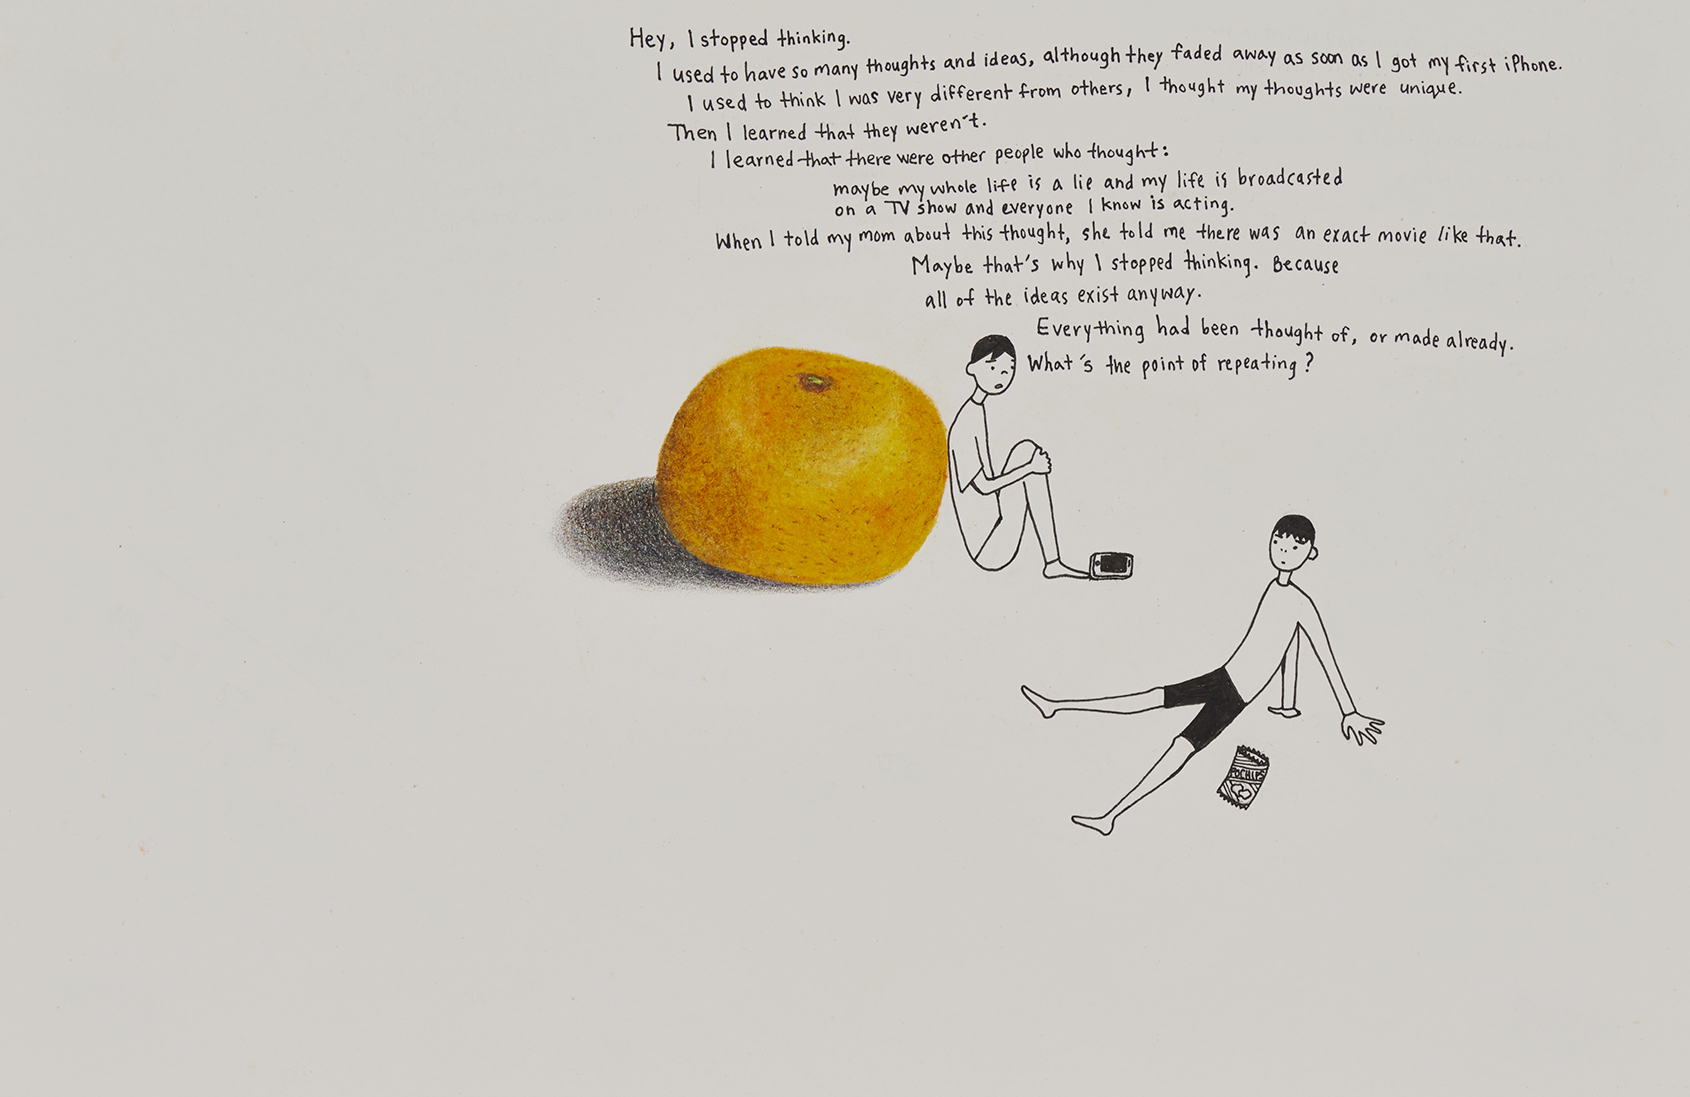 Hey, I stopped thinking.
I used to have so many thoughts and ideas, although they faded away as soon as I got my first iPhone.
I used to think I was very different from others, I thought my thoughts were unique.
Then I learned that they weren't.
I learned that there were other people who thought:
maybe my whole life is a lie and my life is broadcasted
on a TV show and everyone I know is acting.
When I told my mom about this thought, she told me there was an exact movie like that.
Maybe that's why I stopped thinking. Because
all of the ideas exist anyway.
Everything had been thought of, or made already.
What's the point of repeating?
POCHIPS